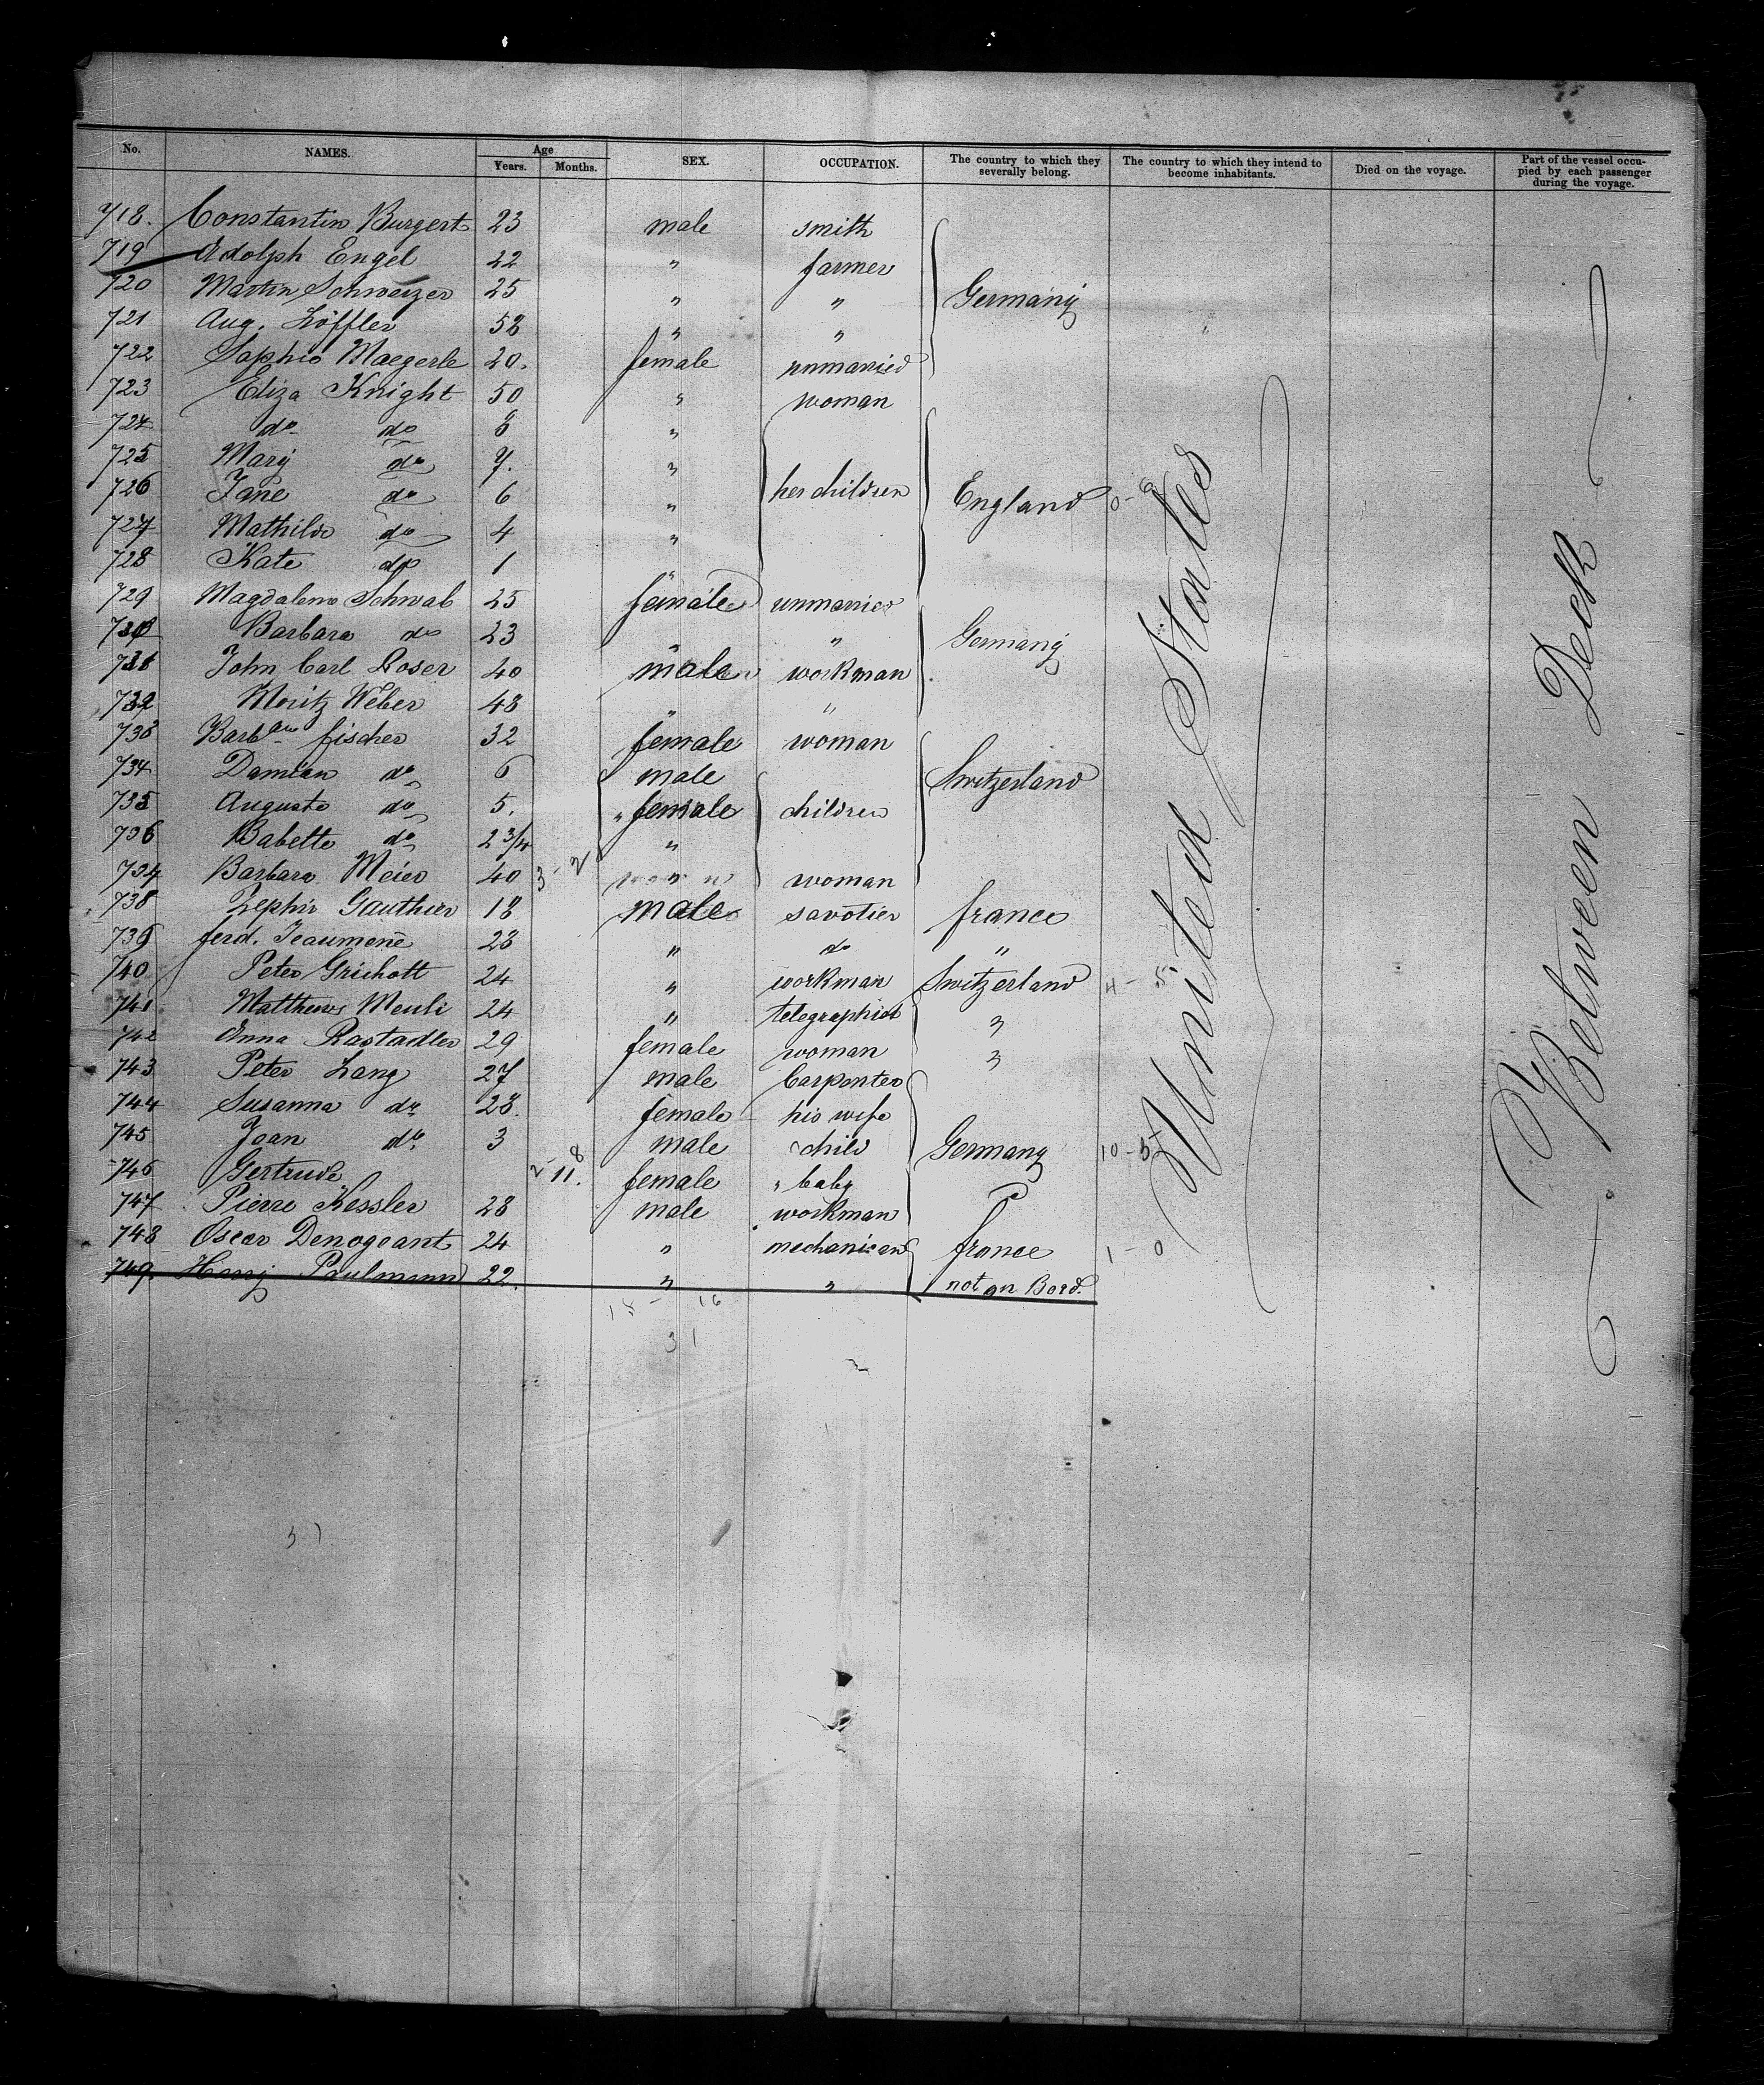 No. NAMES. Age Years. Months. SEX. OCCUPATION. The country to which they severally belong. The country to which they intend to become inhabitants. Died on the voyage. Part of the vessel occupied by each passenger during the voyage.
718. Constantin Burgert 23 male smith
719 Adolph Engel 22 " farmer
720 Martin Schweizer 25 " " Germany
721 Aug. Löffler 52 " "
722 Sophie Maegerle 20. female unmarried
723 Eliza Knight 50 " woman
724 do do 8 "
725 Mary do 7. "
726 Jane do 6 " her children England
727 Mathilde do 4 "
728 Kate do 1 "
729 Magdalena Schwab 25 female unmarried
730 Barbara do 23 " " Germany
731 John Carl Loser 40 male workman
732 Moritz Weber 48 " "
733 Barbara fischer 32 female woman
734 Damian do 6 male Switzerland
735 Augusta do 5. " female children
736 Babette do 2 3/4 "
737 Barbara Meier 40 3 - 2 " woman
738 Zephir Gauthier 18 male savotier france
739 ferd. Jeaumené 28 " do "
740 Peter Grichott 24 " workman Switzerland 4 - 5
741 Matthews Meuli 24 " telegraphist "
742 Anna Rastadler 29 female woman "
743 Peter Lang 27 male Carpenter
744 Susanna do 28. female his wife
745 Jean do. 3 male child Germany 10 - 5
746 Gertrude 11. female " baby
747 Pierre Kessler 28 male workman
748 Oscar Denogeant 24 " mechanican france 1 - 0
749. Henry Paulmann 22. " " not on Bord.
18 - 16
31
United States
Between Deck